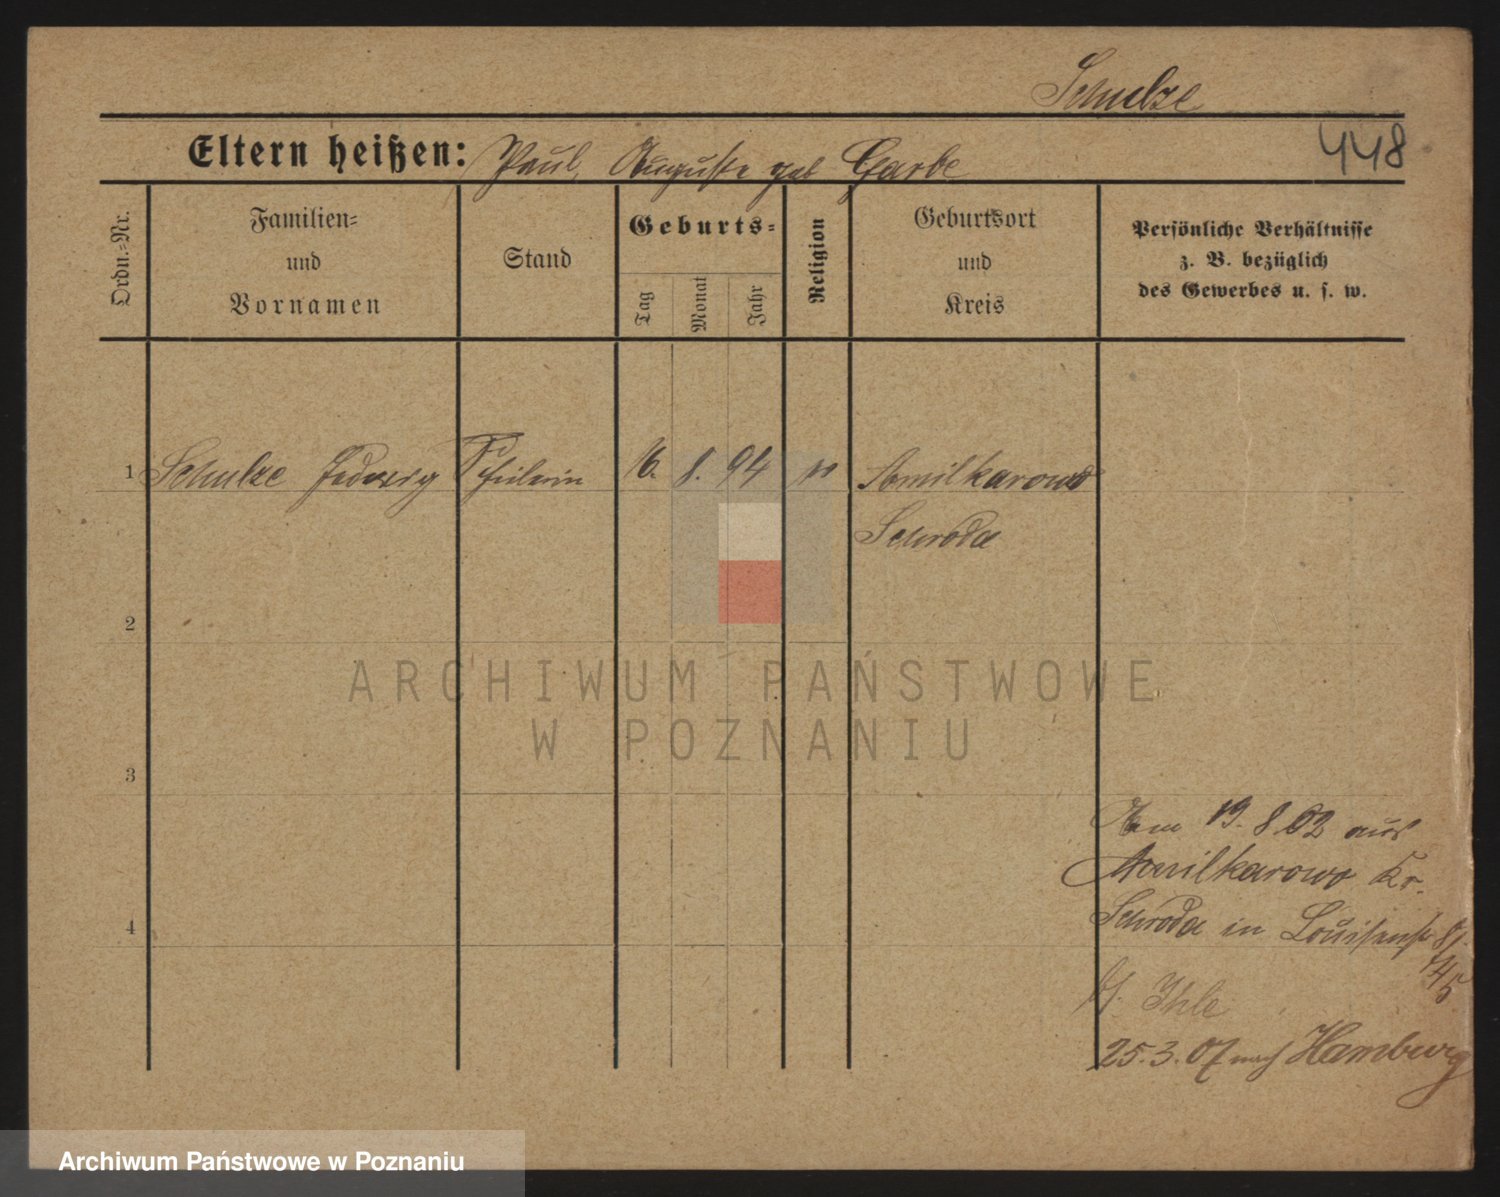 Schulze
448
Eltern heißen: Paul, Auguste geb Garbe
Ordn.-Nr.
Familien- und Vornamen
Stand
Geburts-
Tag
Monat
Jahr
Religion
Geburtsort und Kreis
Persönliche Verhältnisse
z. B. bezüglich
des Gewerbes u. s. w.
1 Schulze Hedwig Schülerin 16. 8. 94 Amilkarowo
Schroda
2
3
4
Am 19. 8 02 aus
Amilkarowo Kr.
Schroda in Louisenst 8/
14/5
b/. Ihle
25. 3. 07 nach Hamburg
ARCHIWUM PAŃSTWOWE
W POZNANIU
Archiwum Państwowe w Poznaniu